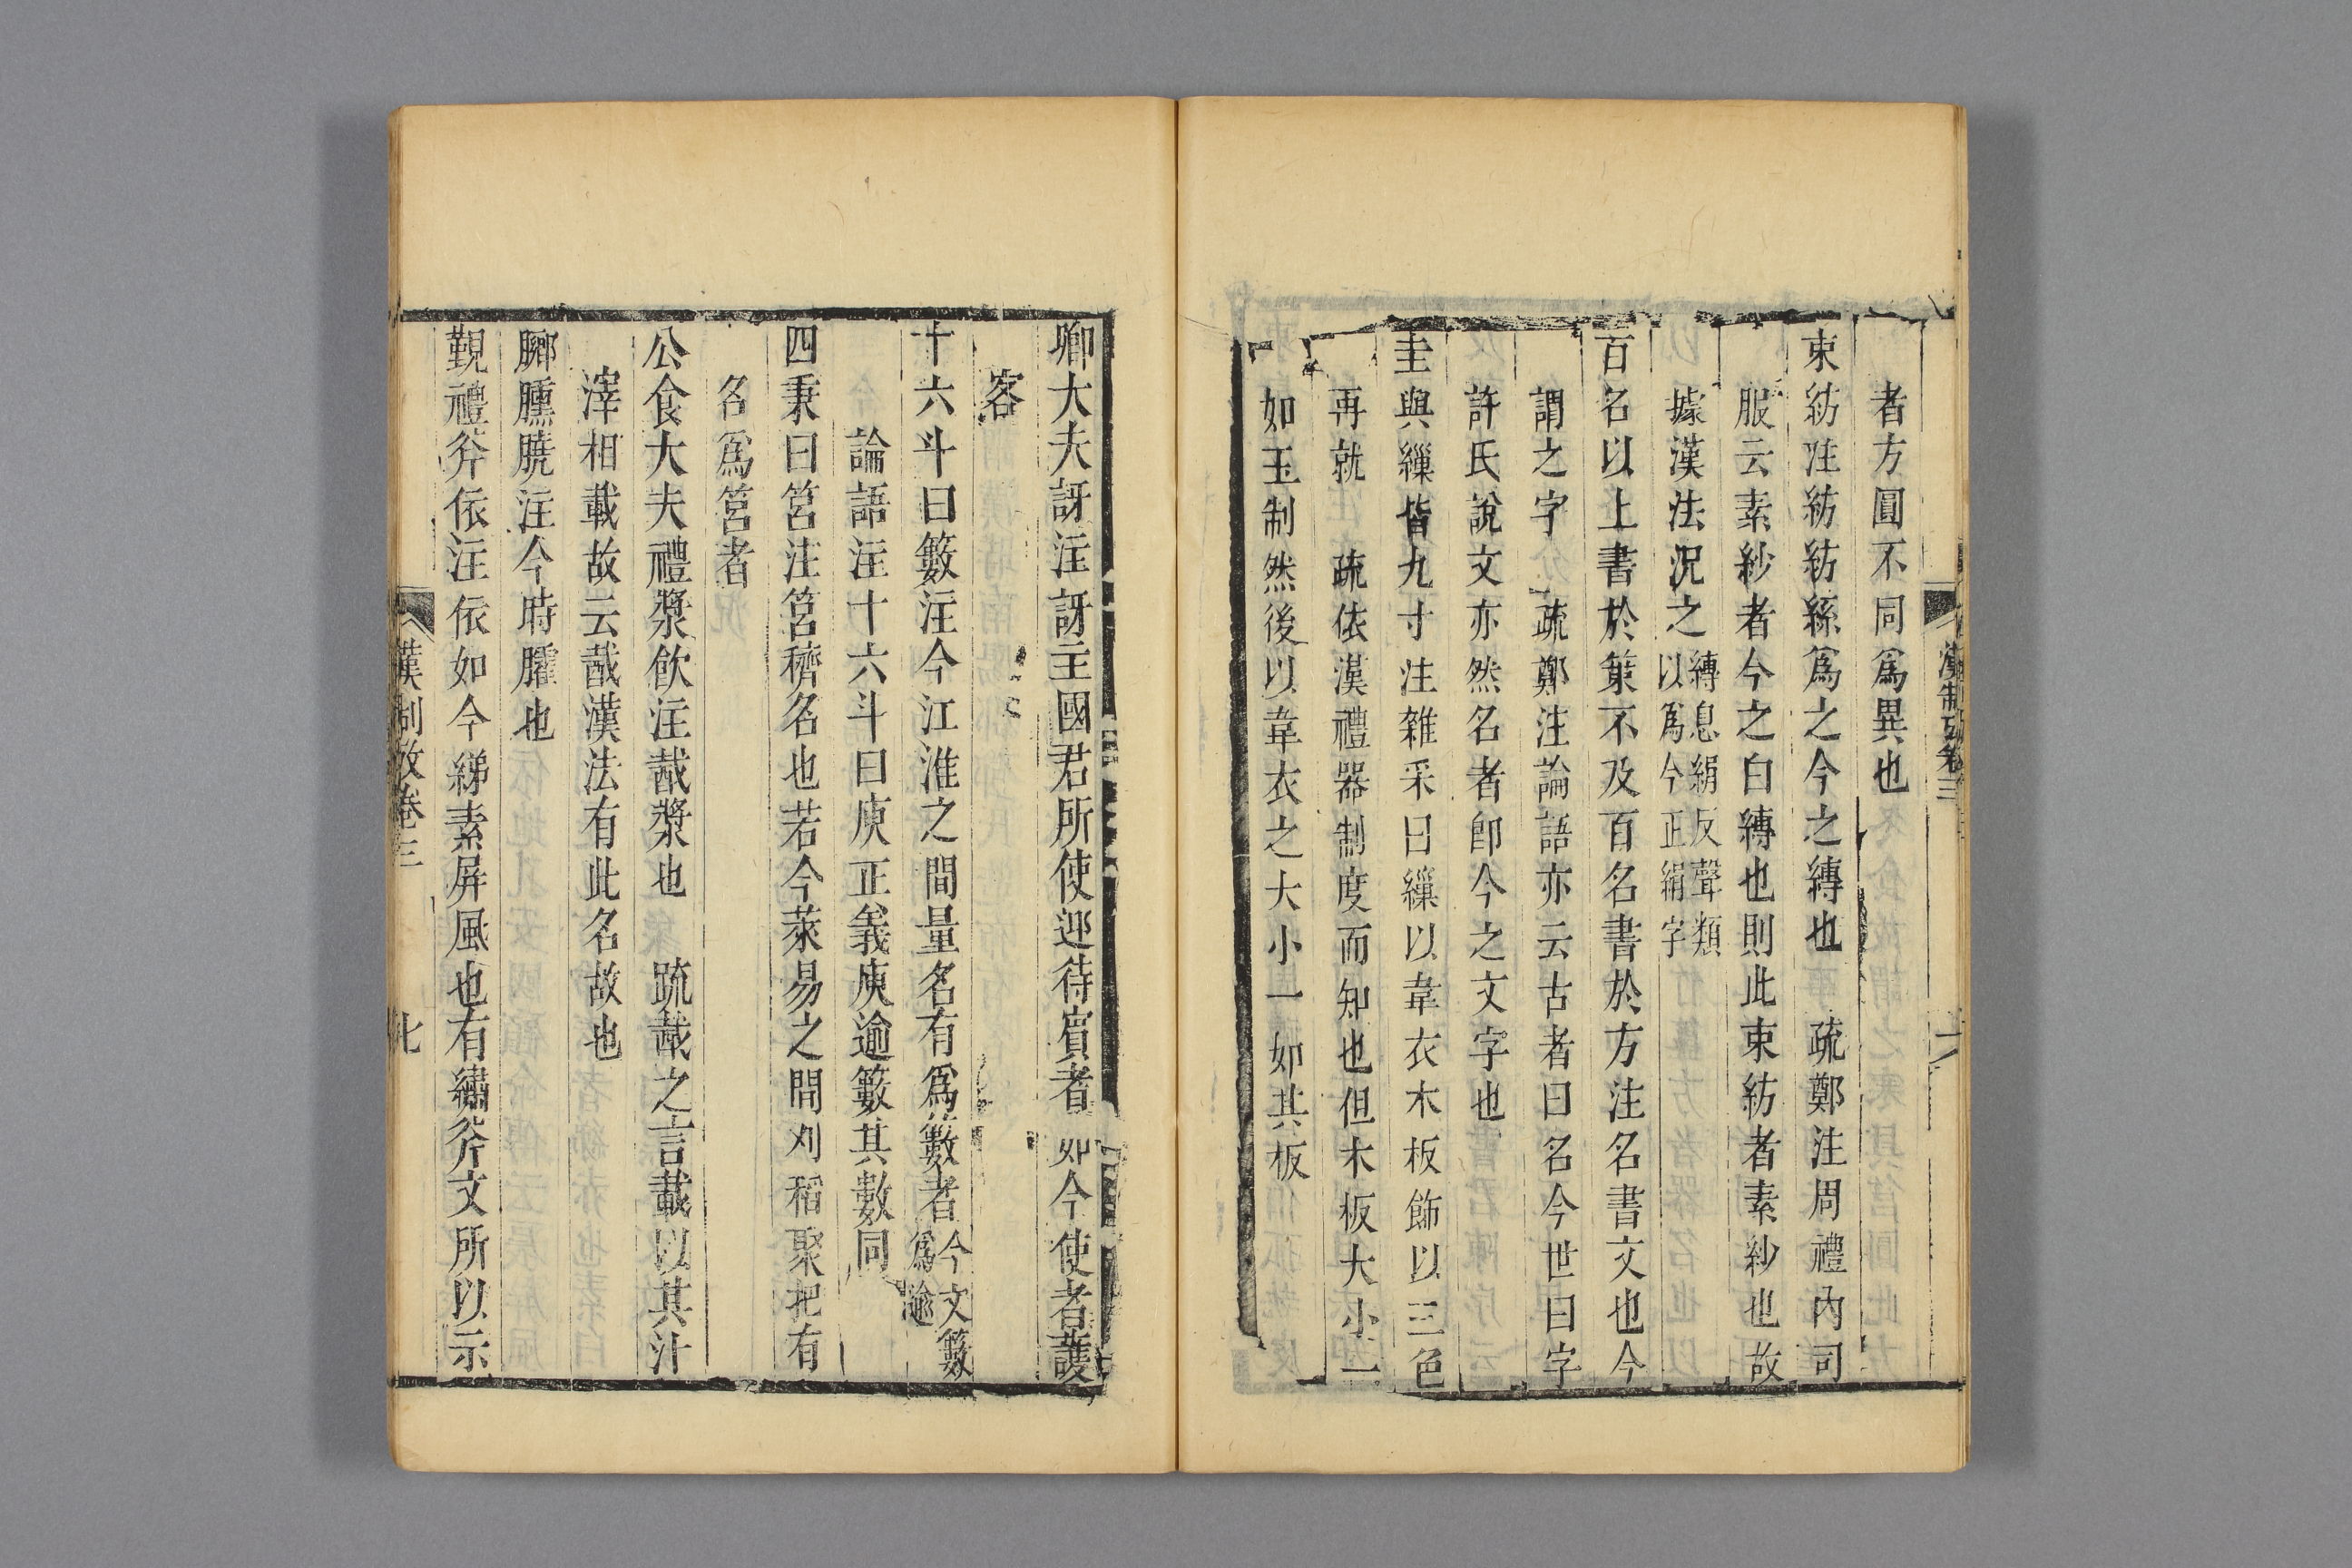 漢制攷卷三
者方圓不同爲異也
束紡注紡紡絲爲之今之縳也 疏鄭注周禮內司
服云素紗者今之白縳也則此束紡者素紗也故
據漢法況之縳息絹反聲類以爲今正絹字
百名以上書於策不及百名書於方注名書文也今
謂之字 疏鄭注論語亦云古者曰名今世曰字
許氏說文亦然名者卽今之文字也
圭與繅皆九寸注雜采曰繅以韋衣木板飾以三色
再就 疏依漢禮器制度而知也但木板大小一
如玉制然後以韋衣之大小一如其板
卿大夫訝注訝主國君所使迎待賓者 如今使者護
客
十六斗曰籔注今江淮之間量名有爲籔者今文籔爲逾
論語注十六斗曰庾正義庾逾籔其數同
四秉曰筥注筥穧名也若今萊易之間刈稻聚把有
名爲筥者
公食大夫禮漿飲注酨漿也 疏酨之言載以其汁
滓相載故云酨漢法有此名故也
膷臐膮注今時臛也
覲禮斧依注依如今綈素屏風也有繡斧文所以示
漢制攷卷三 七